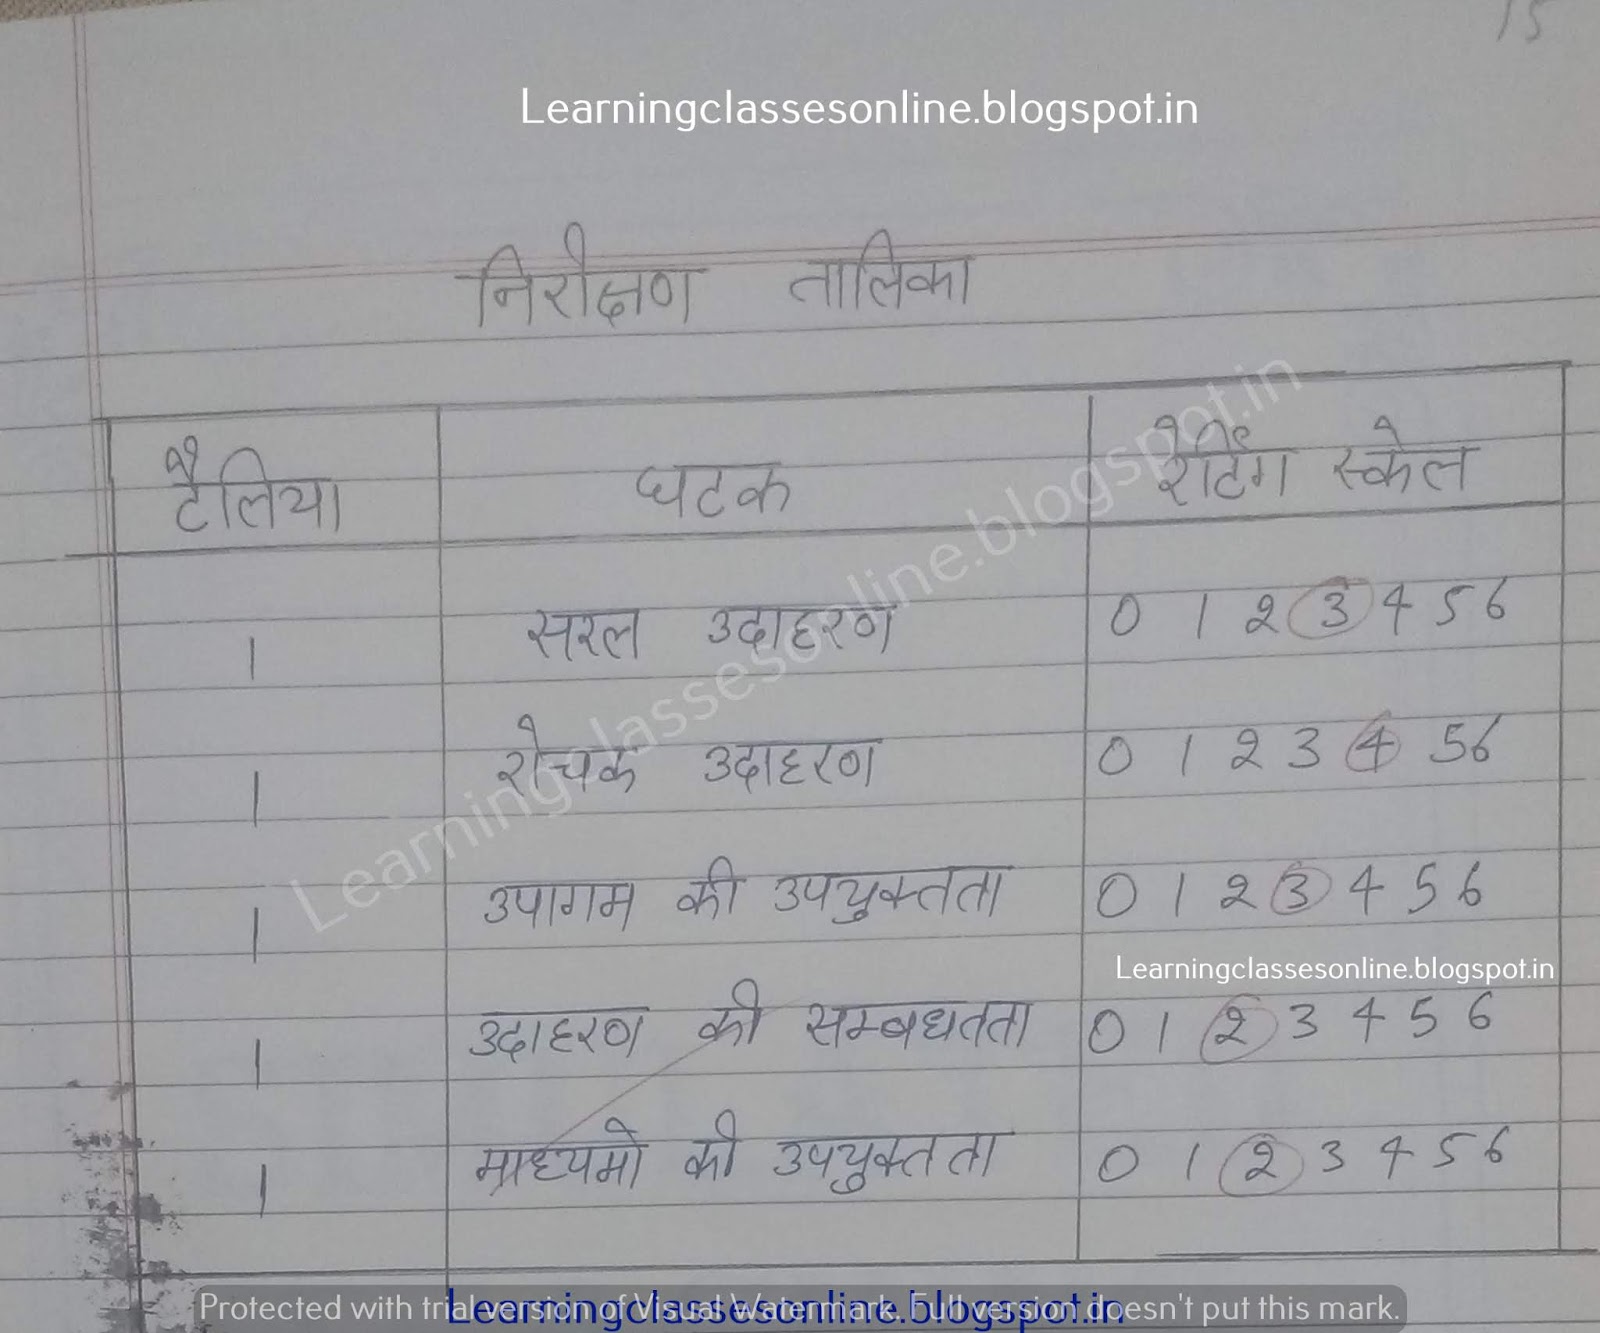 15
Learningclassesonline.blogspot.in
निरीक्षण तालिका
टैलिया घटक रेटिंग स्केल
1 सरल उदाहरण 0 1 2 3 4 5 6
1 रोचक उदाहरण 0 1 2 3 4 5 6
1 उपागम की उपयुक्तता 0 1 2 3 4 5 6
Learningclassesonline.blogspot.in
1 उदाहरण की सम्बधतता 0 1 2 3 4 5 6
1 माध्यमो की उपयुक्तता 0 1 2 3 4 5 6
Learningclassesonline.blogspot.in
Protected with trial version of Visual Watermark. Full version doesn't put this mark.
Learningclassesonline.blogspot.in